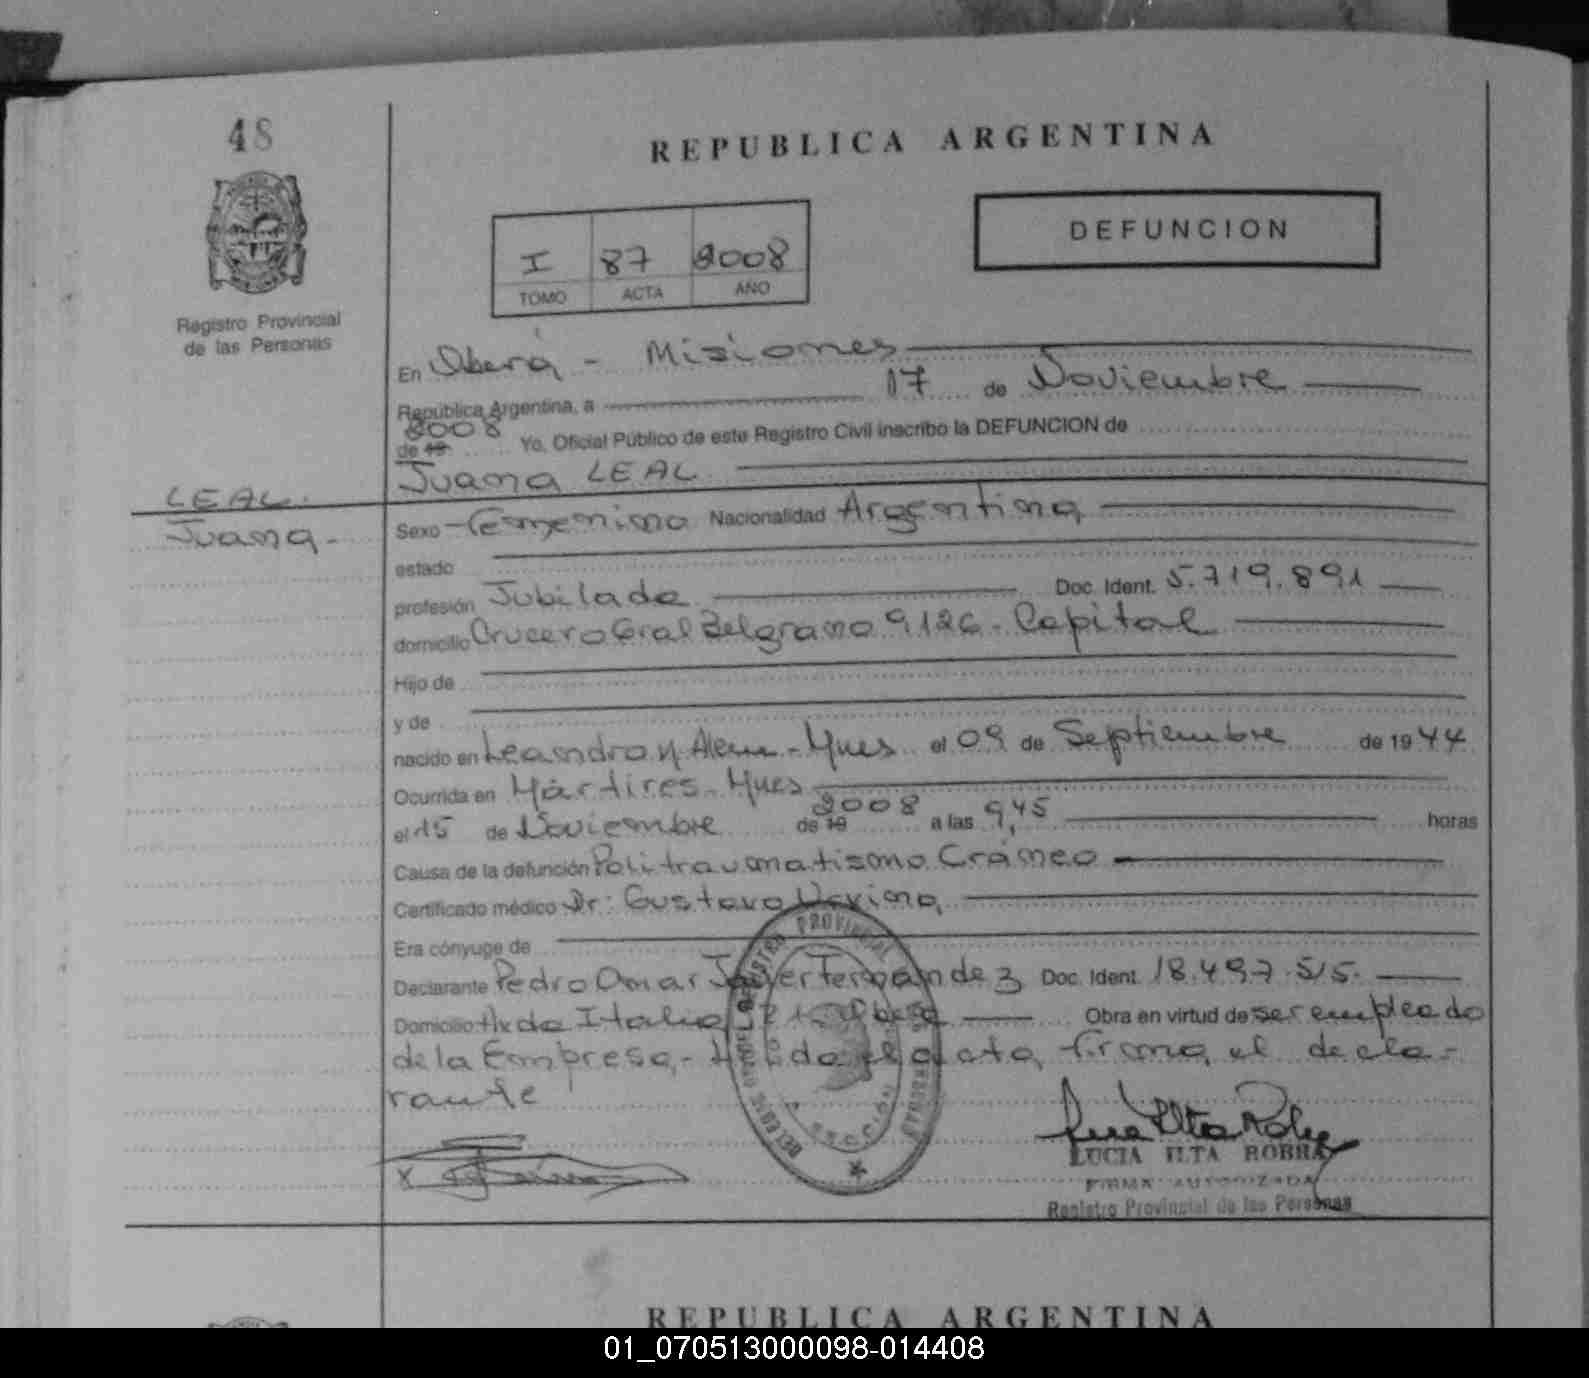 48
REPUBLICA ARGENTINA
DEFUNCION
I 87 2008
TOMO ACTA AÑO
Registro Provincial
de las Personas
En Oberá - Misiones
República Argentina, a 17 de Noviembre
2008
de 19 Yo, Oficial Público de este Registro Civil inscribo la DEFUNCION de
Juana LEAL
LEAL.
Juana -
Sexo Femenino Nacionalidad Argentina
estado
profesión Jubilada Doc. Ident. 5.719.891
domicilio Crucero Gral Belgrano 9126 - Capital
Hijo de
y de
nacido en Leandro N. Alem - Mnes el 09 de Septiembre de 1944
Ocurrida en Mártires - Mnes
el 15 de Noviembre de 19 2008 a las 9,45 horas
Causa de la defunción Politraumatismo Cráneo
Certificado médico Dr: Gustavo
Era cónyuge de
Declarante Pedro Omar Javier Fernandez Doc. Ident. 18.497.515.
Domicilio Av de Italia Obera Obra en virtud de ser empleado
de la Empresa.- Leida el acta, firma el decla-
rante
REGISTRO PROVINCIAL DE LAS PERSONAS
LUCIA ILTA ROBRA
FIRMA AUTORIZADA
Registro Provincial de las Personas
REPUBLICA ARGENTINA
01_070513000098-014408